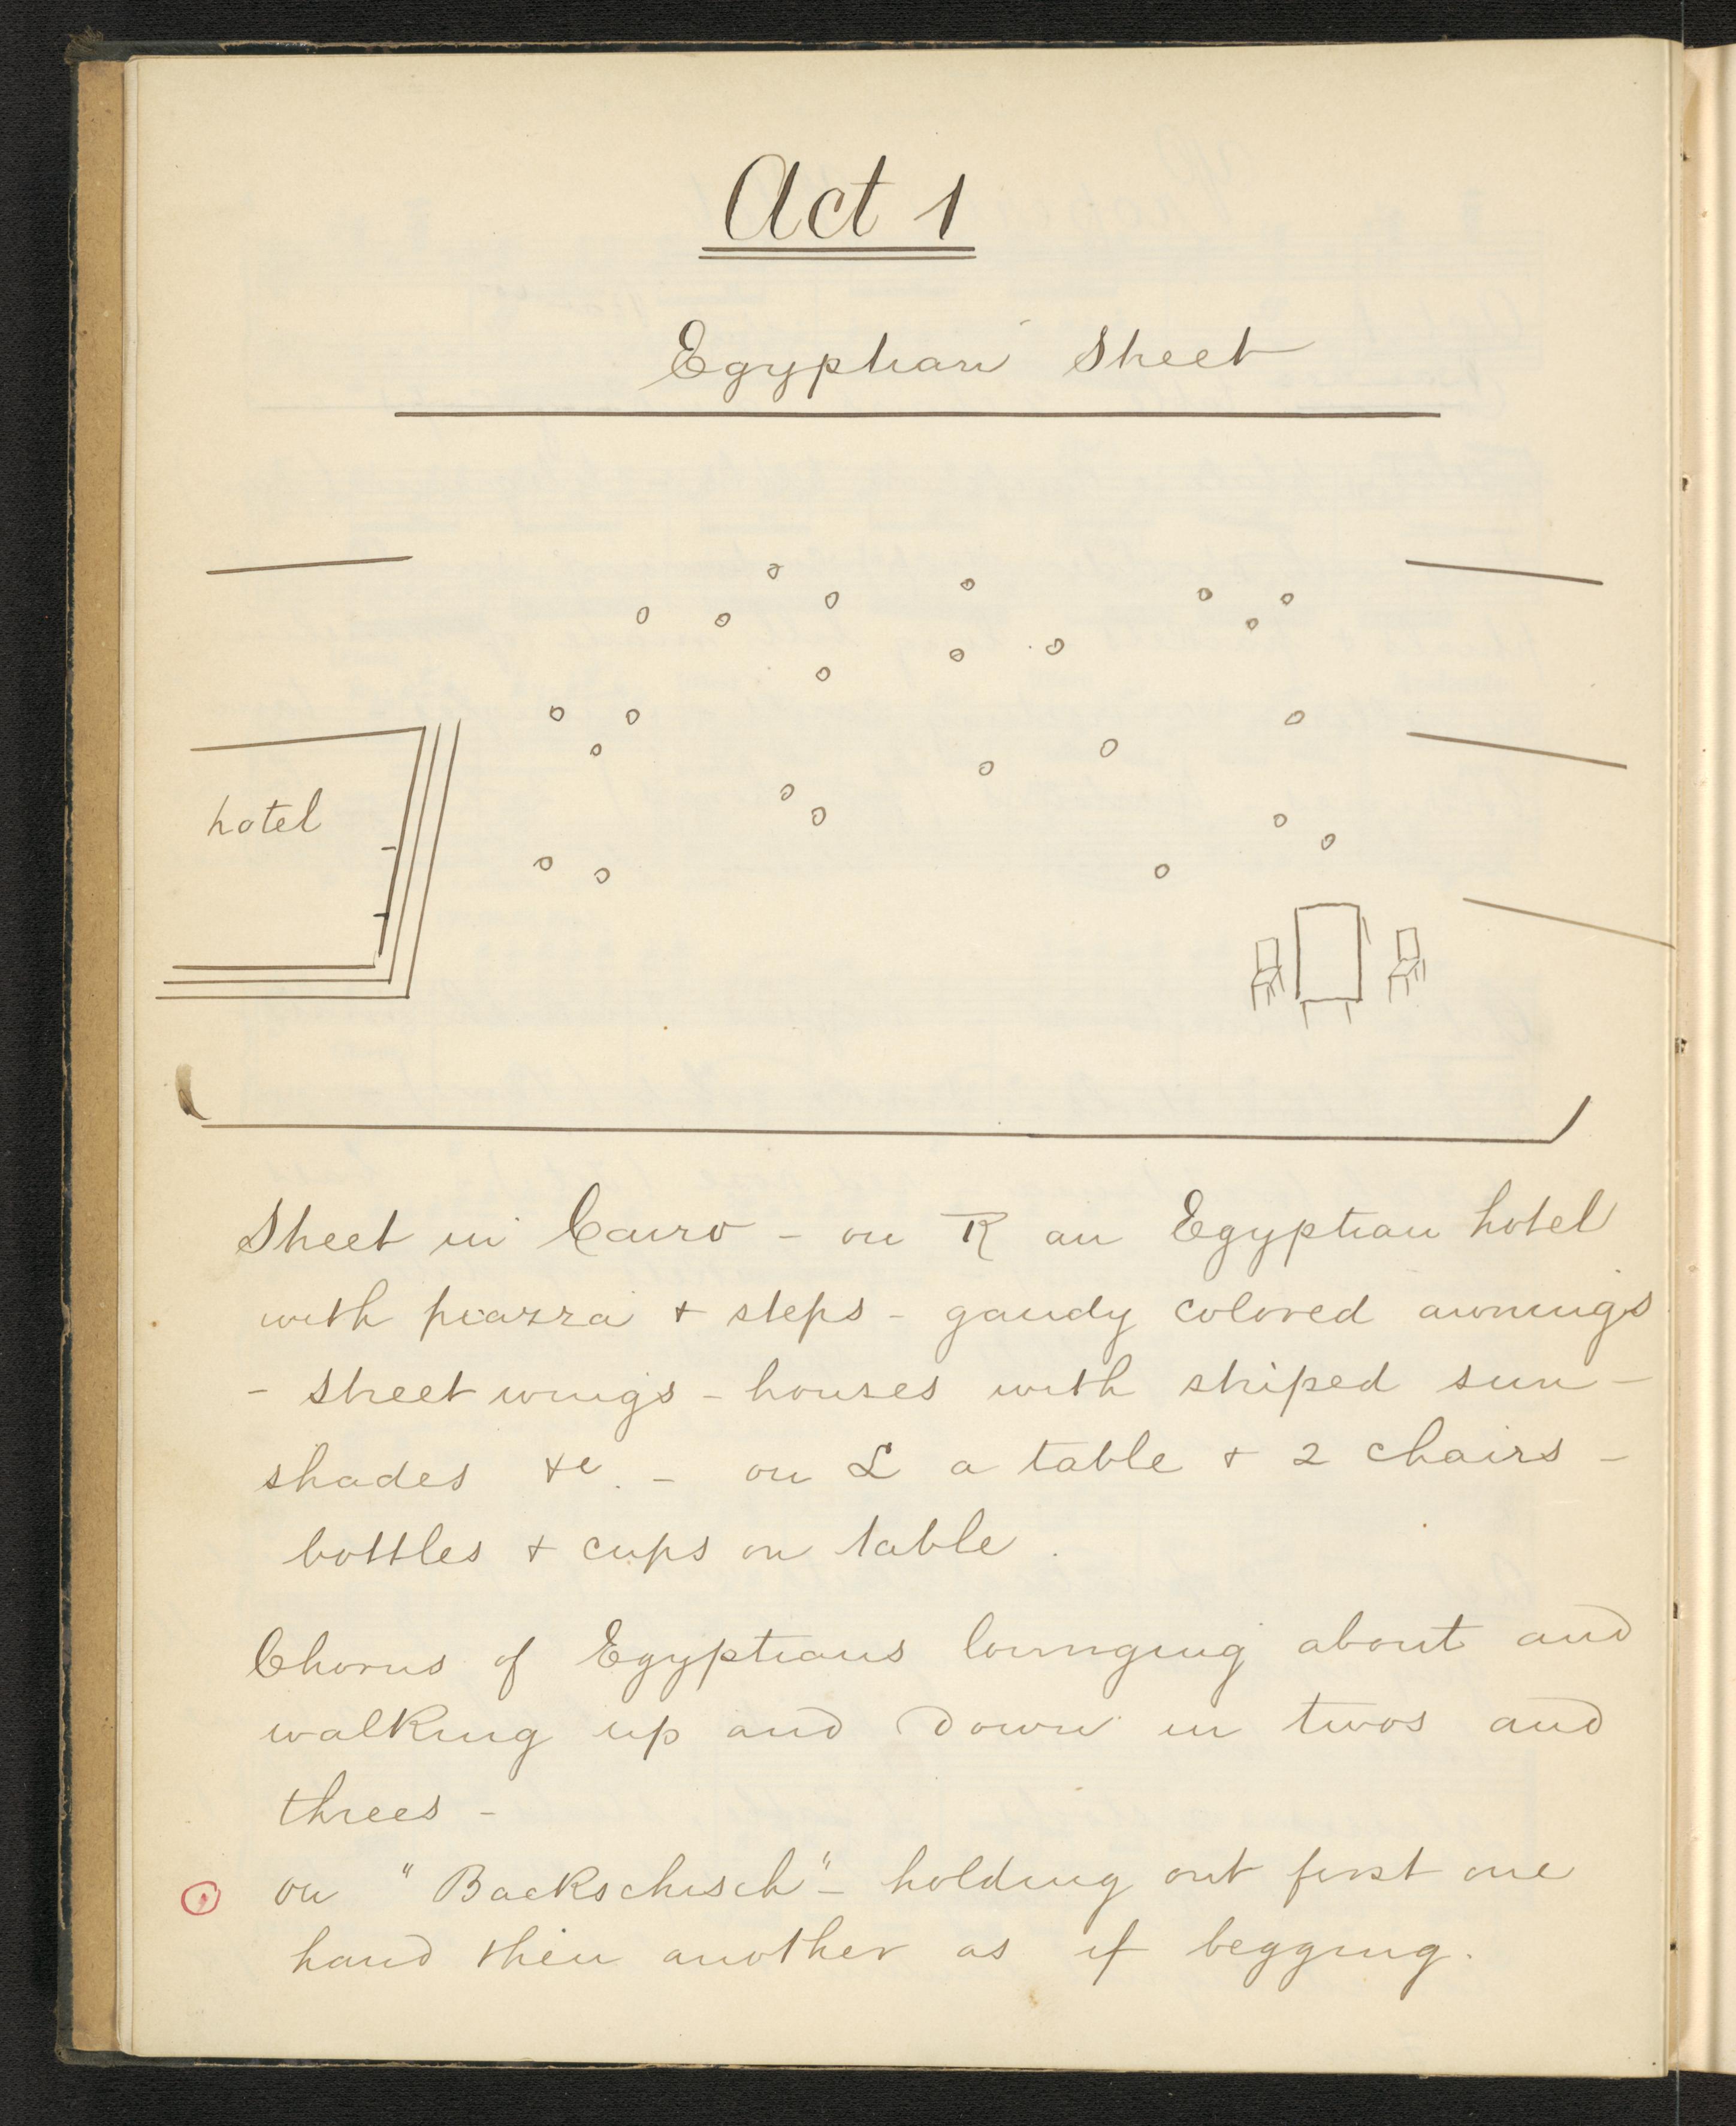 Act 1
Egyptian Street
hotel
Street in Cairo - on R an Egyptian hotel
with piazza + steps - gaudy colored awnings
- street wings - houses with striped sun-
shades &c. - on L a table + 2 chairs -
bottles + cups on table.
Chorus of Egyptians lounging about and
walking up and down in twos and
threes -
on "Backschisch" - holding out first one
hand then another as if begging.